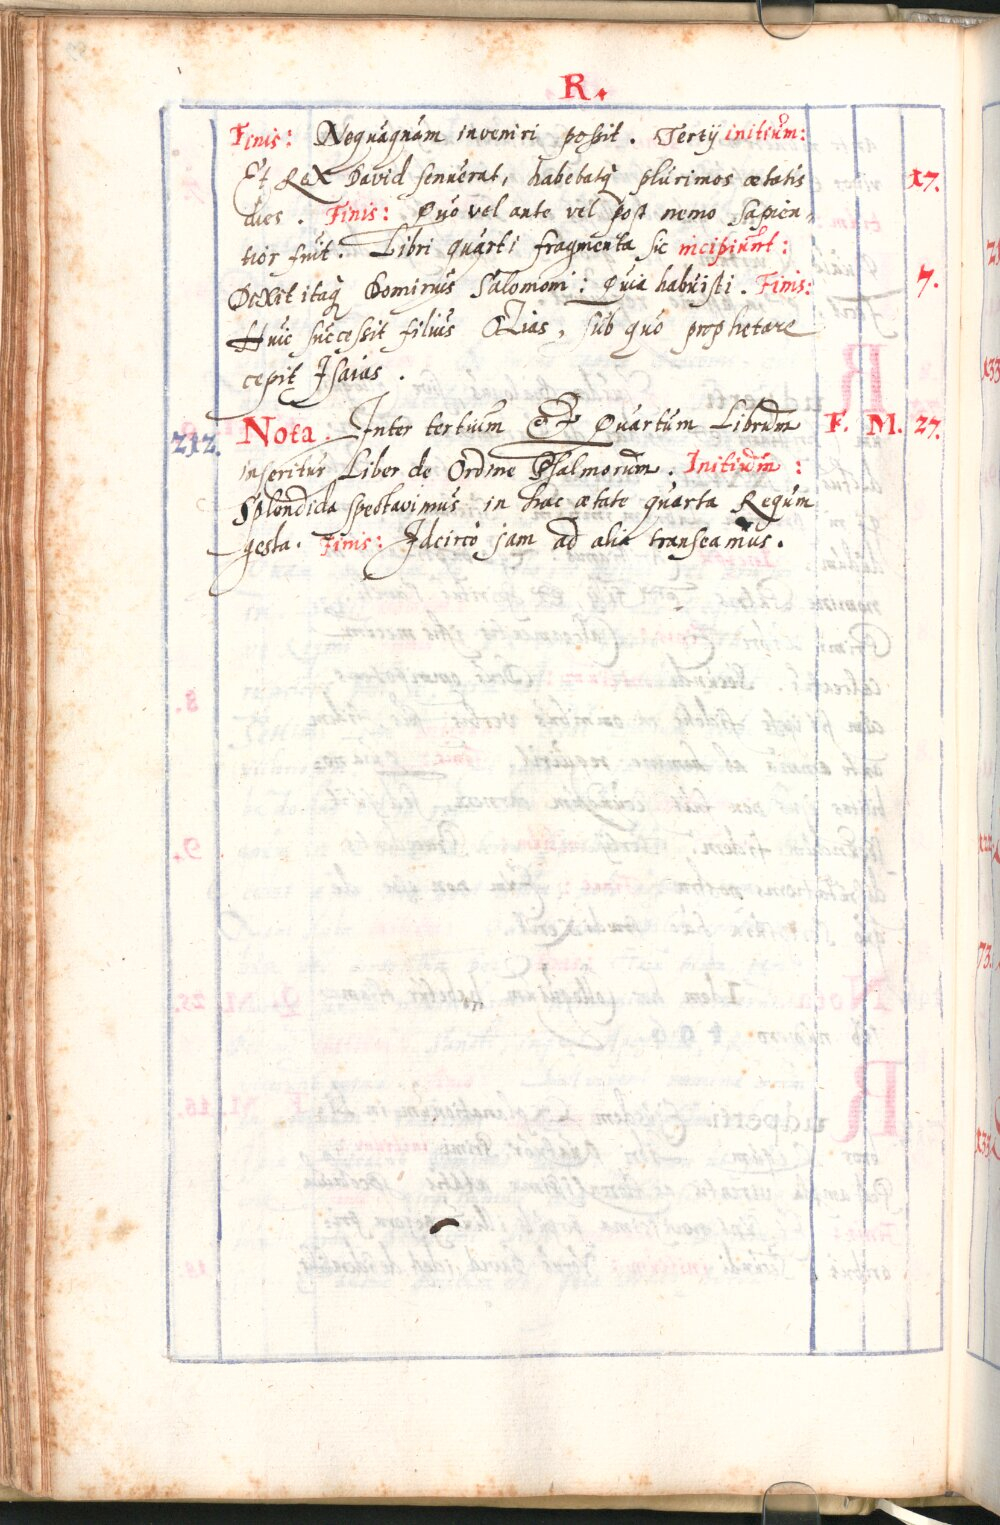 R.
Finis: Nequaquam inveniri possit. Tertij initium:
Et Rex David senuerat, habebatq̃ plurimos ætatis 17.
dies. Finis: Quo vel ante vel post nemo sapien-
tior fuit. Libri quarti fragmenta sic incipiunt:
Dixit itaq̃ Dominus Salomoni: Quia habuisti. Finis: 7.
Huic successit filius Ozias, sub quo prophetare
cepit Isaias.
212. Nota. Inter tertium Et Quartum Librum F. M. 27.
inseritur Liber de Ordine Psalmorum. Initium:
Splendida spectavimus in hac ætate quarta Regum
gesta. Finis: Idcirco jam ad alia transeamus.